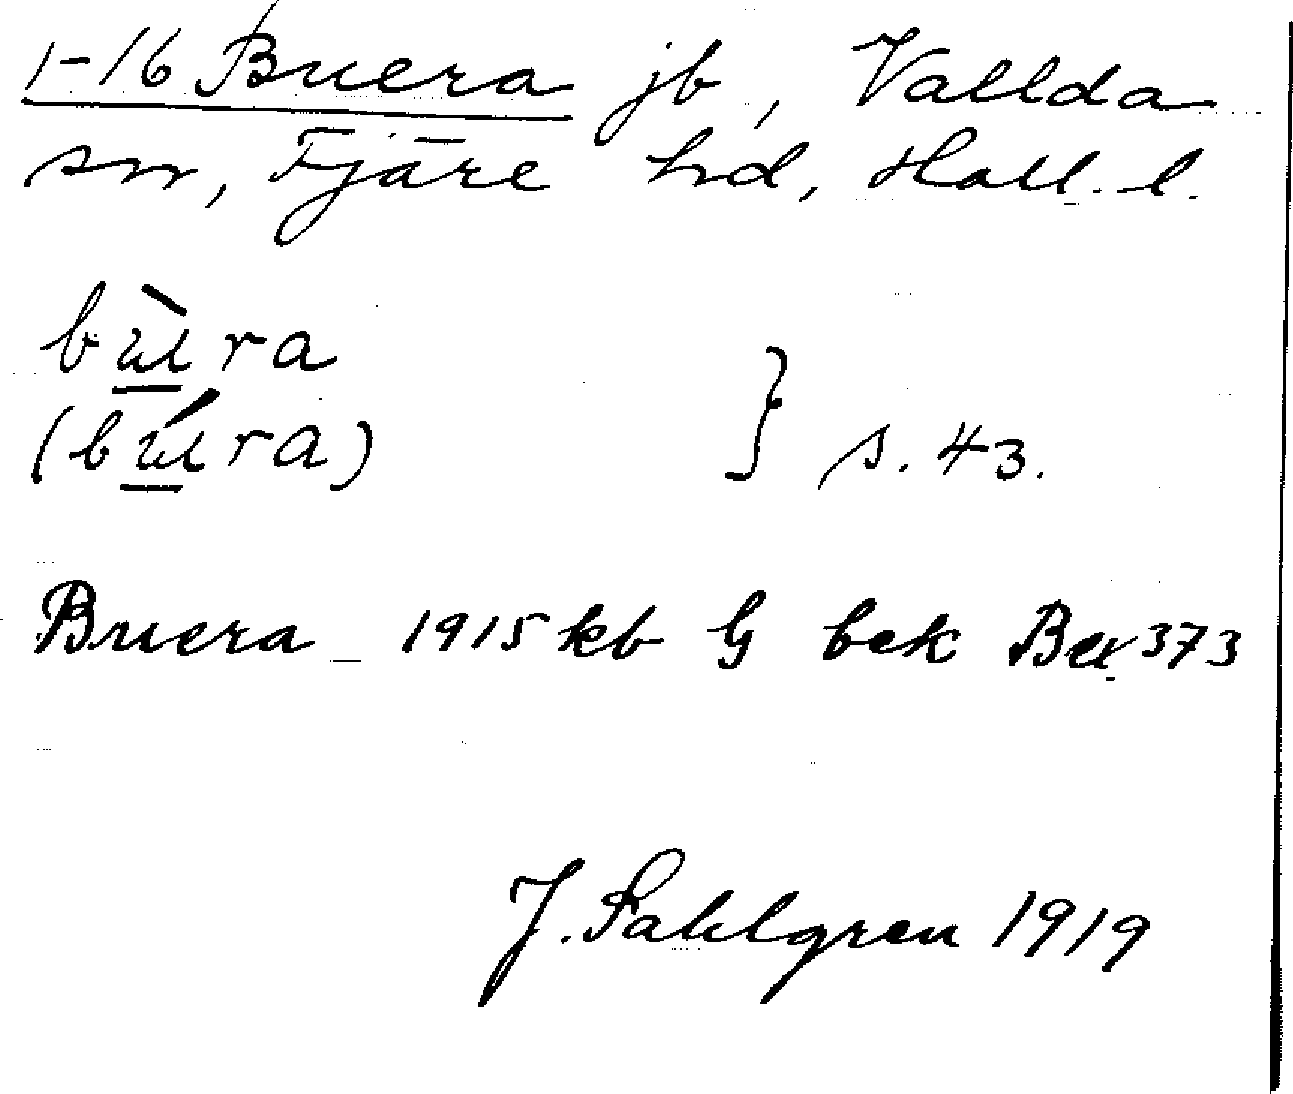 1-16 Buera jb, Vallda
sn, Fjäre hd, Hall. l.
bùra
(búra) } s. 43.
Buera 1915 kb G bek Bex 373
J. Sahlgren 1919